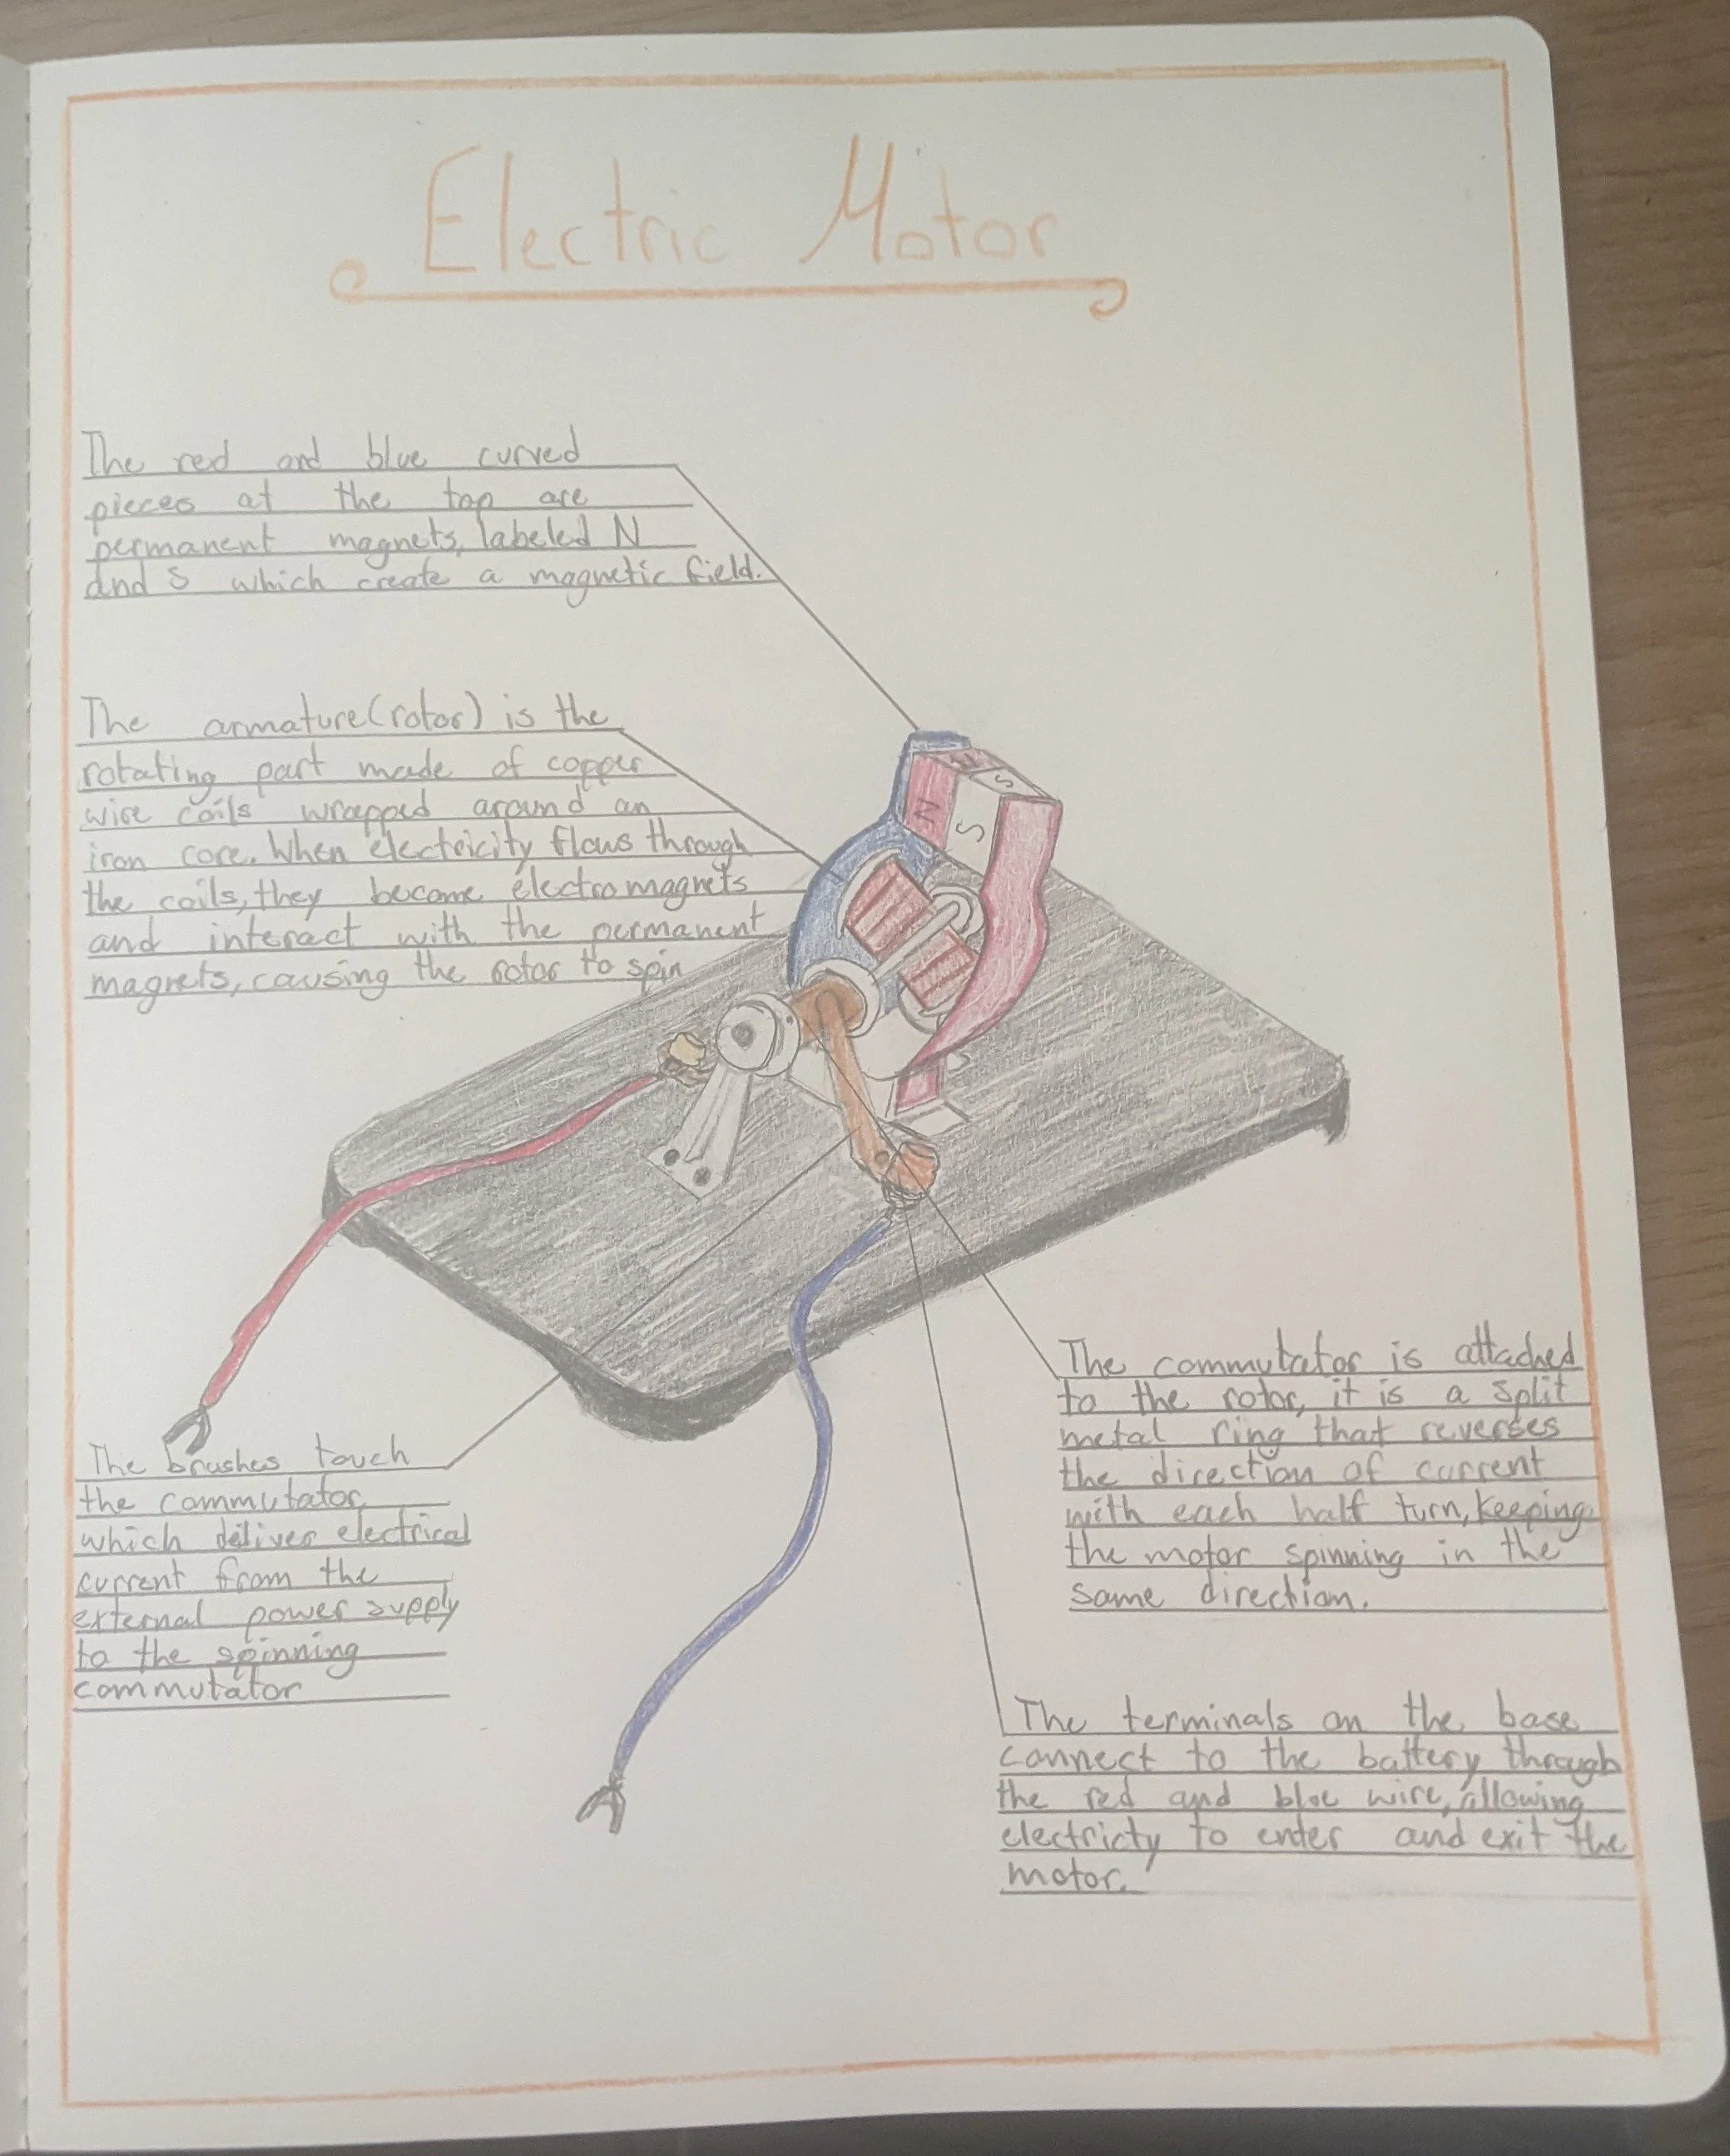 Electric Motor
The red and blue curved
pieces at the top are
permanent magnets, labeled N
and S which create a magnetic field.
The armature(rotor) is the
rotating part made of copper
wire coils wrapped around an
iron core. When electricity flows through
the coils, they become electromagnets
and interact with the permanent
magnets, causing the rotor to spin
N
S
N
S
The brushes touch
the commutator
which deliver electrical
current from the
external power supply
to the spinning
commutator
The commutator is attached
to the rotor, it is a split
metal ring that reverses
the direction of current
with each half turn, keeping
the motor spinning in the
same direction.
The terminals on the base
connect to the battery through
the red and blue wire, allowing
electricty to enter and exit the
motor.